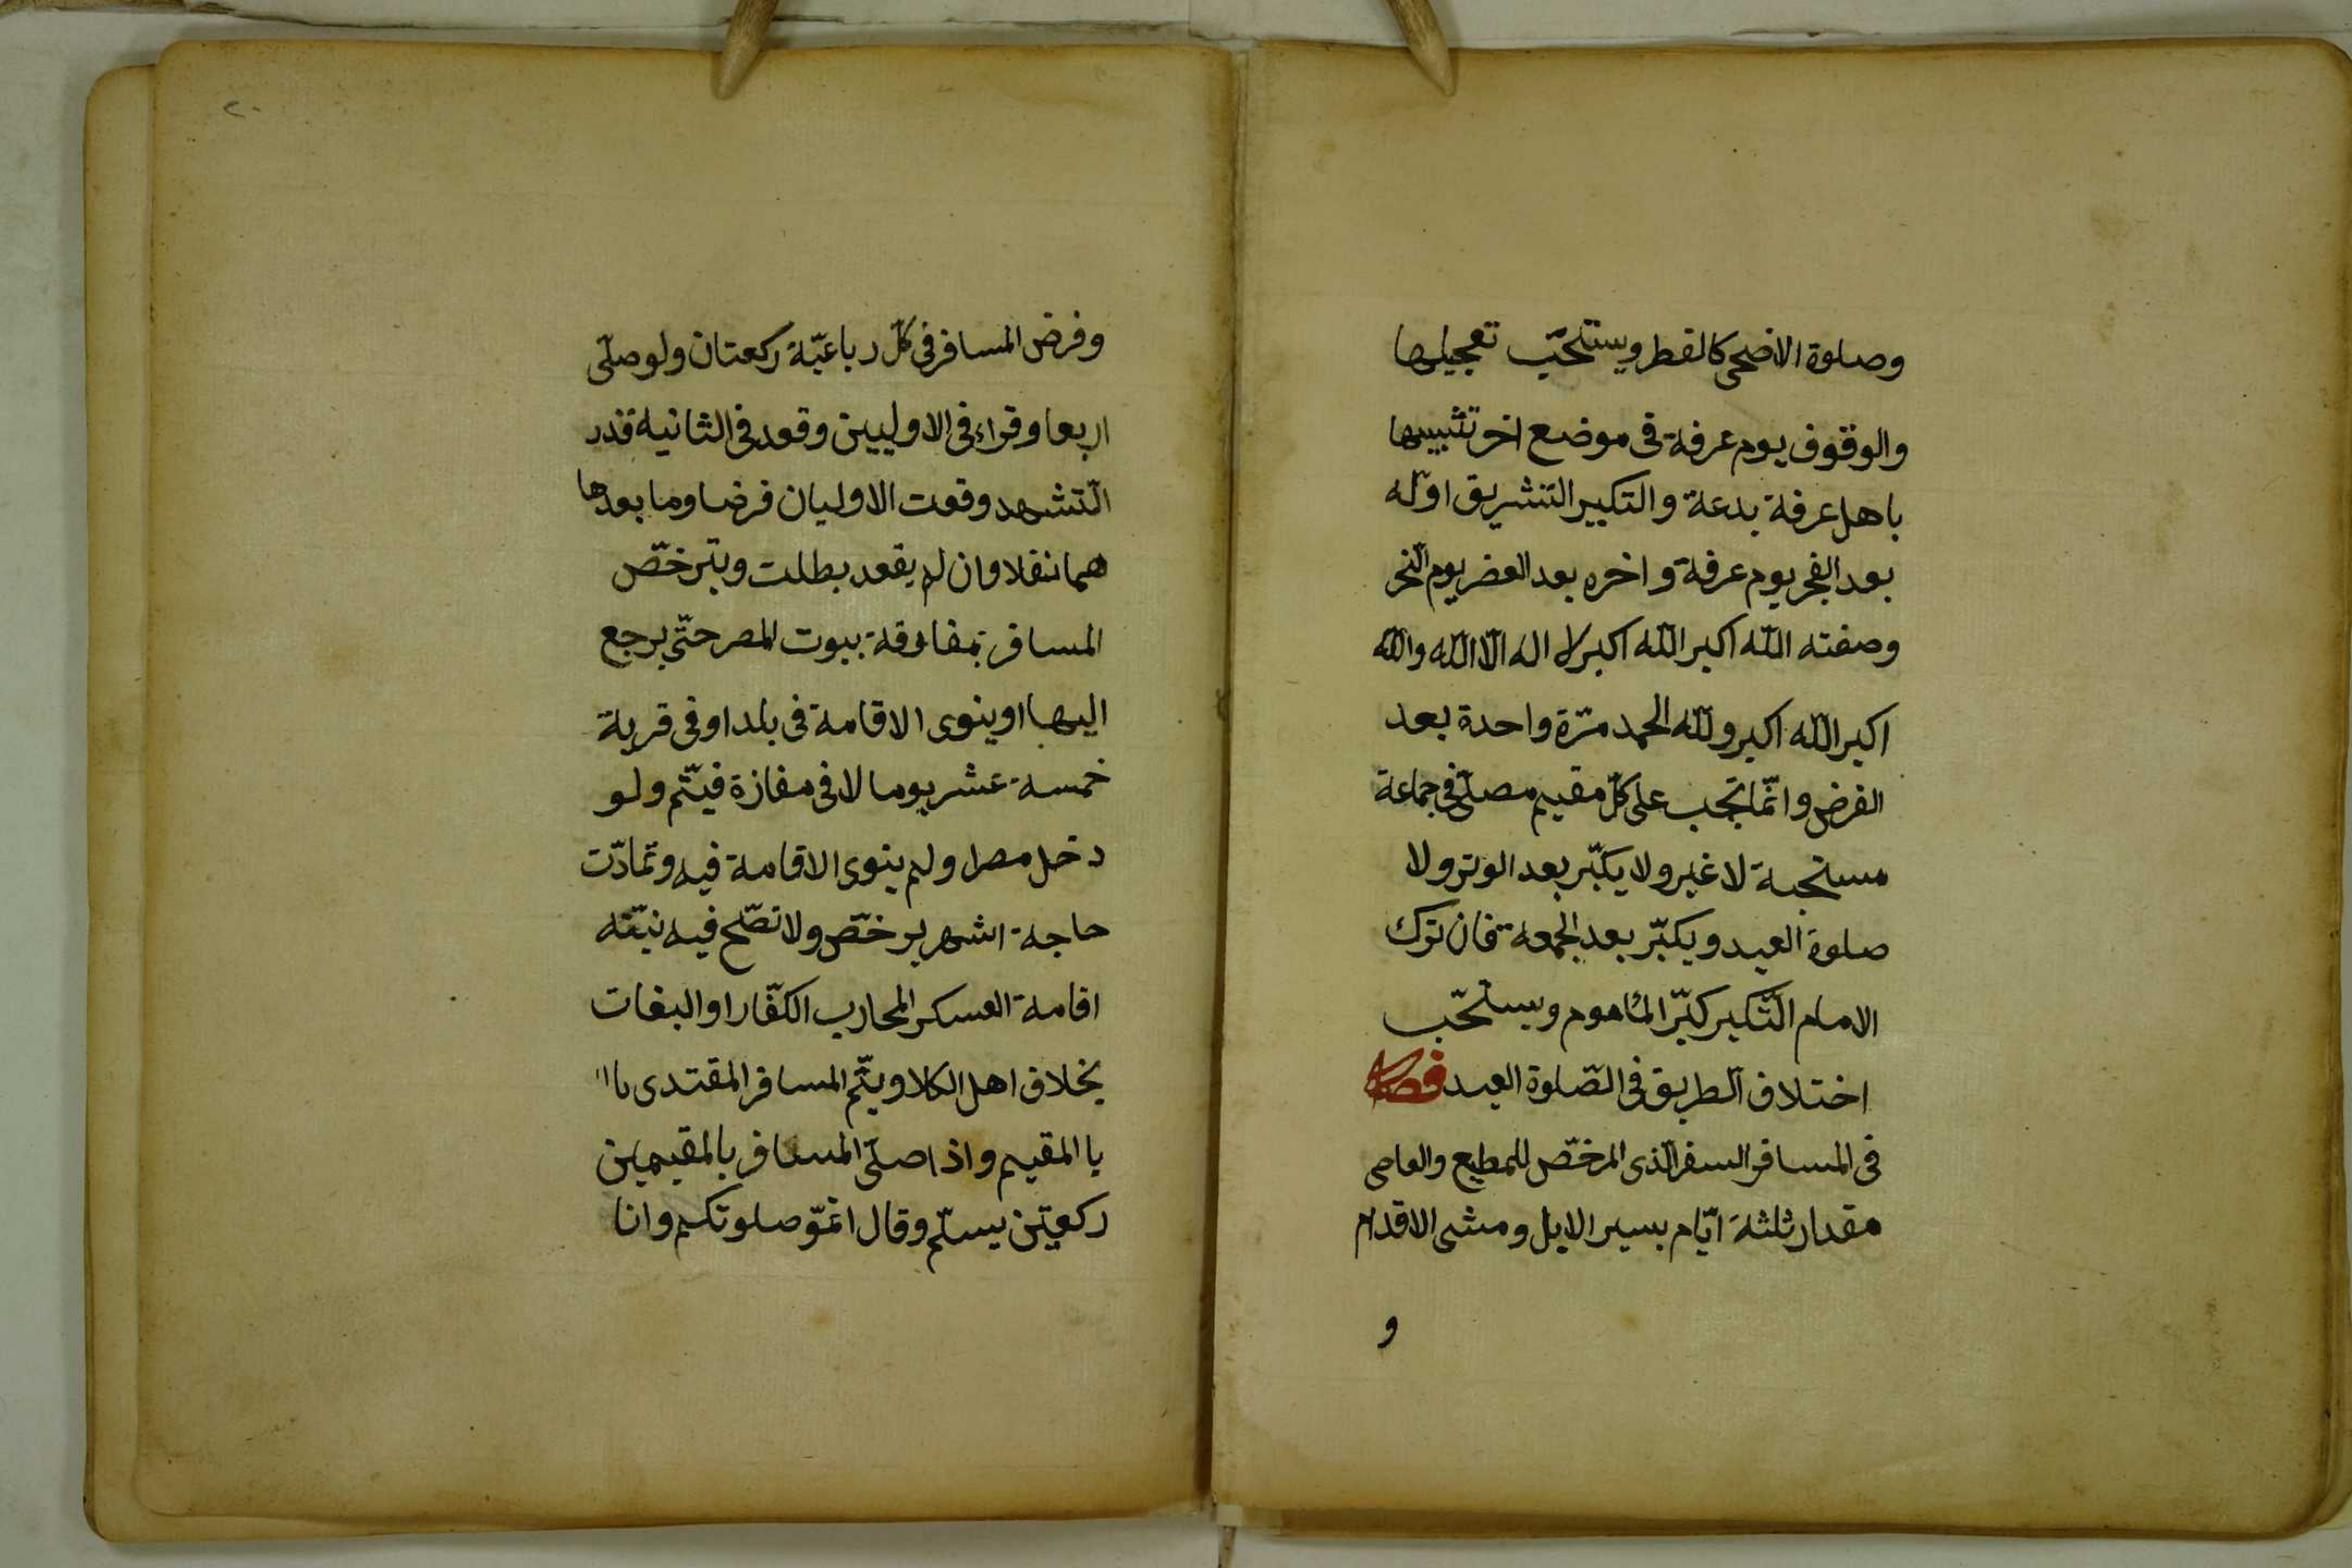 وصلوة الاضحى كالفطر ويستحبّ تعجيلها
والوقوف يوم عرفة فى موضع اخر تشبيها
باهل عرفة بدعة والتكبير التشريق اوّله
بعد الفجر يوم عرفة واخره بعد العصر يوم النّحر
وصفته اللّه اكبر اللّه اكبر لا اله الّا اللّه واللّه
اكبر اللّه اكبر وللّه الحمد مرّة واحدة بعد
الفرض وانّما تجب على كلّ مقيم مصلّى فى جماعة
مستحبة لا غير ولا يكبّر بعد الوتر ولا
صلوة العيد ويكبّر بعد الجمعة فان ترك
الامام التّكبير كبّر المأموم ويستحّب
اختلاف الطريق فى الصّلوة العيد فصل
فى المسافر السفر الّذى المرخّص للمطيع والعاصى
مقدار ثلثة ايّام بسير الابل ومشى الاقدام
و
٢٠
وفرض المسافر فى كلّ رباعيّة ركعتان ولو صلّى
اربعا وقراء فى الاوليين وقعد فى الثانية قدر
التّشهد وقعت الاوليان فرضا وما بعدها
هما نفلا وان لم يقعد بطلت ويترخّص
المسافر بمفارقة بيوت المصر حتّى يرجع
اليها او ينوى الاقامة فى بلد او فى قرية
خمسة عشر يوما لا فى مفازة فيتّم ولو
دخل مصرا ولم ينوى الاقامة فيه وتمادّت
حاجة اشهر يرخّص ولا تصّلح فيه نيّته
اقامة العسكر المحارب الكفّار او البغات
بخلاف اهل الكلا ويتّم المسافر المقتدى باا
با المقيم واذا صلّى المسافر بالمقيمين
ركعيتن يسلّم وقال اتمّو صلوتكم وانا